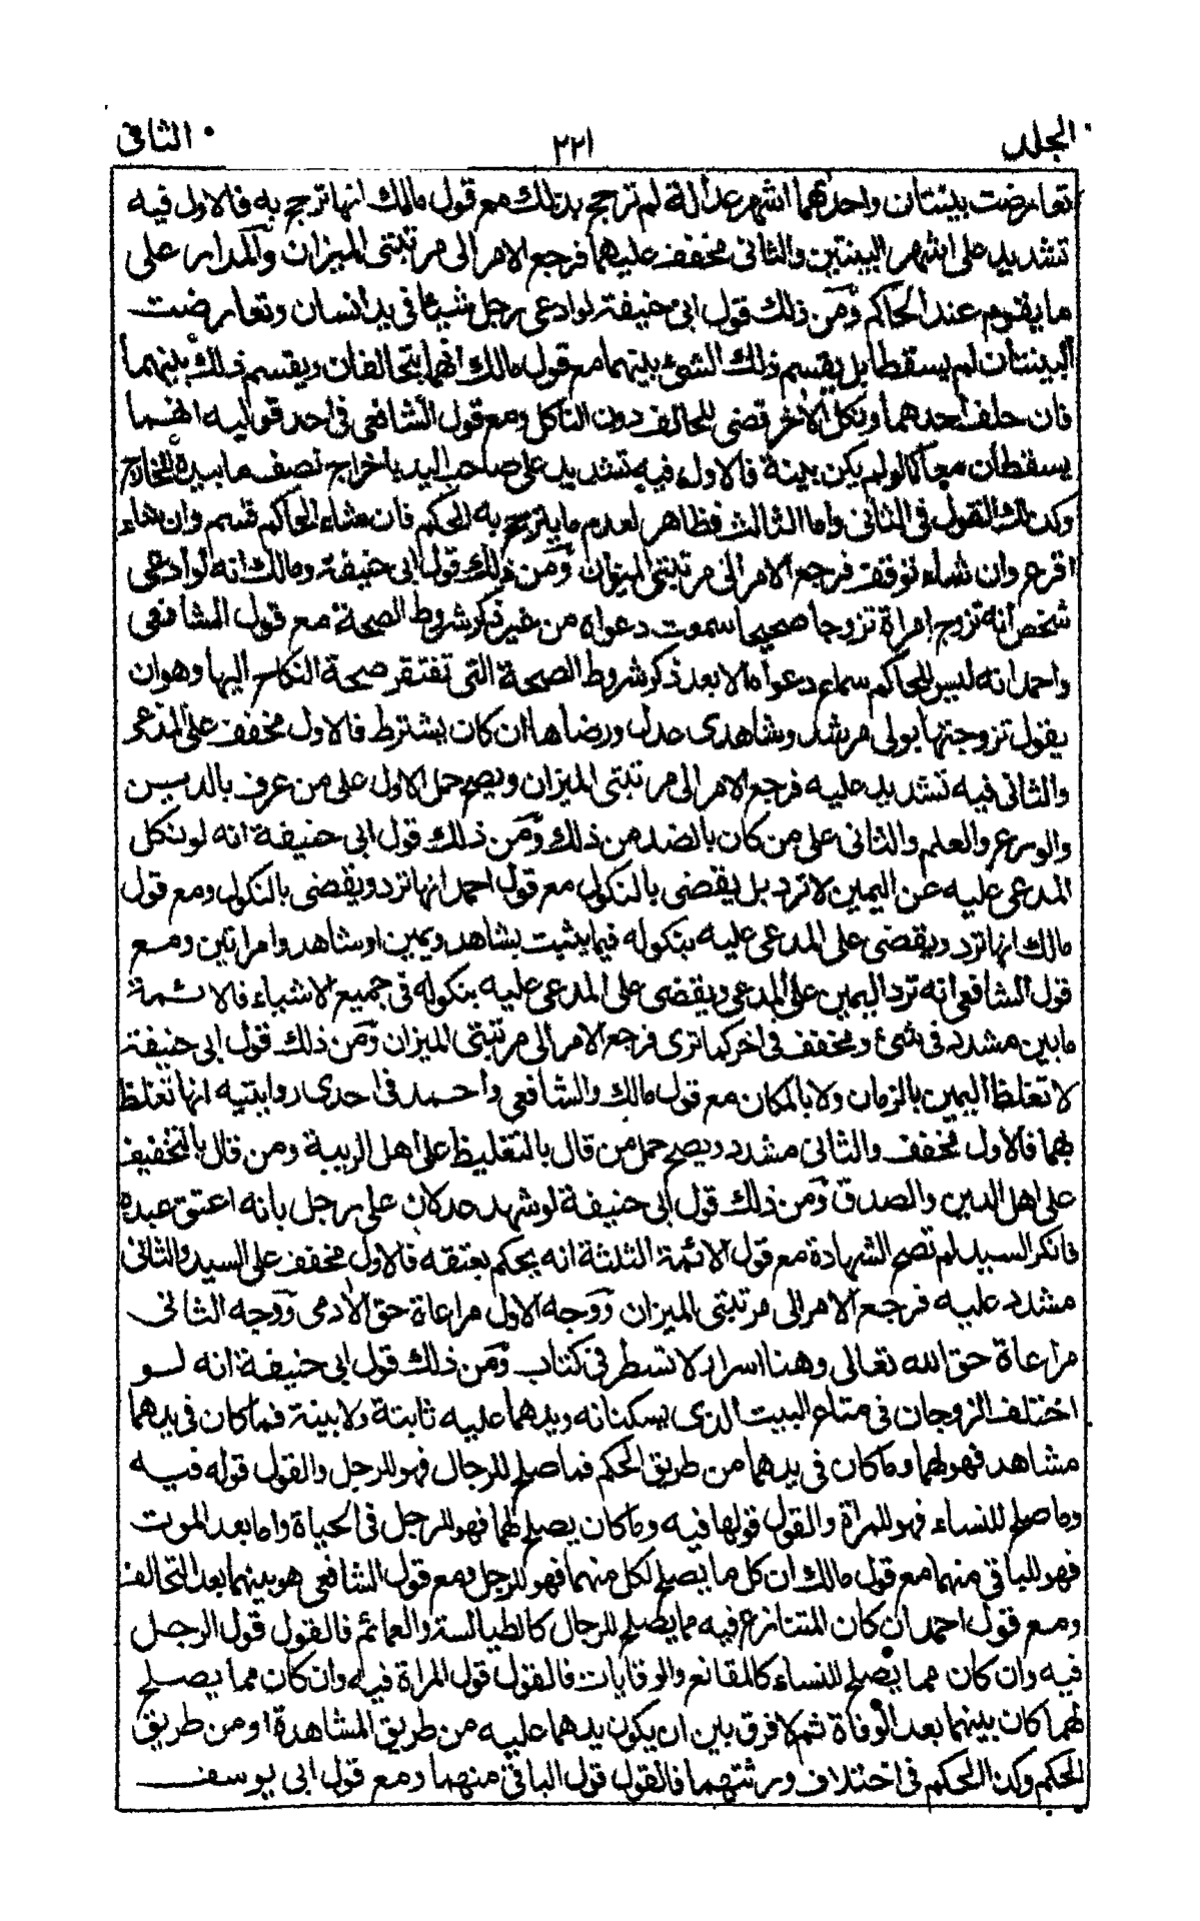 المجلد ٢٢١ الثانى
تعارضت بينتان واحدهما اشهر عدالة لم ترجح بذلك مع قول مالك انها ترجح به فالاول فيه
تشديد على اشهر البينتين والثانى مخفف عليهما فرجع الامر الى مرتبتى الميزان والمدار على
ما يقوم عند الحاكم ومن ذلك قول ابى حنيفة لو ادعى رجل شيئا فى يد انسان وتعارضت
البينتان لم يسقطا بل يقسم ذلك الشئ بينهما مع قول مالك انهما يتحالفان ويقسم ذلك بينهما
فان حلف احدهما ونكل الاخر قضى للحالف دون الناكل ومع قول الشافعى فى احد قوليه انهما
يسقطان معا كما لو لم يكن بينة فالاول فيه تشديد على صاحب اليد باخراج نصف ما بيده للخارج
وكذلك القول فى الثانى واما الثالث فظاهر لعدم ما يترجح به الحكم فان شاء الحاكم قسم وان شاء
اقرع وان شاء توقف فرجع الامر الى مرتبتى الميزان ومن ذلك قول ابى حنيفة ومالك انه لو ادعى
شخص انه تزوج امراة تزوجا صحيحا سمعت دعواه من غير ذكر شروط الصحة مع قول الشافعى
واحمد انه ليس للحاكم سماع دعواه الا بعد ذكر شروط الصحة التى تفتقر صحة النكاح اليها وهو ان
يقول تزوجتها بولى مرشد وشاهدى عدل ورضاها ان كان يشترط فالاول مخفف على المدعى
والثانى فيه تشديد عليه فرجع الامر الى مرتبتى الميزان ويصح حمل الاول على من عرف بالدين
والورع والعلم والثانى على من كان بالضد من ذلك ومن ذلك قول ابى حنيفة انه لو نكل
المدعى عليه عن اليمين لا ترد بل يقضى بالنكول مع قول احمد انها ترد ويقضى بالنكول ومع قول
مالك انها ترد ويقضى على المدعى عليه بنكوله فيما يثبت بشاهد ويمين او شاهد وامراتين ومع
قول الشافعى انه ترد اليمين على المدعى ويقضى على المدعى عليه بنكوله فى جميع الاشياء فالائمة
ما بين مشدد فى شئ ومخفف فى اخر كما ترى فرجع الامر الى مرتبتى الميزان ومن ذلك قول ابى حنيفة
لا تغلظ اليمين بالزمان ولا بالمكان مع قول مالك والشافعى واحمد فى احدى روايتيه انها تغلظ
بهما فالاول مخفف والثانى مشدد ويصح حمل من قال بالتغليظ على اهل الريبة ومن قال بالتخفيف
على اهل الدين والصدق ومن ذلك قول ابى حنيفة لو شهد عدلان على رجل بانه اعتق عبده
فانكر السيد لم تصح الشهادة مع قول الائمة الثلثة انه يحكم بعتقه فالاول مخفف على السيد والثانى
مشدد عليه فرجع الامر الى مرتبتى الميزان ووجه الاول مراعاة حق الادمى ووجه الثانى
مراعاة حق الله تعالى وهنا اسرار لا تسطر فى كتاب ومن ذلك قول ابى حنيفة انه لو
اختلف الزوجان فى متاع البيت الذى يسكنانه ويدهما عليه ثابتة ولا بينة فما كان فى يدهما
مشاهد فهو لهما وما كان فى يدهما من طريق الحكم فما صلح للرجال فهو للرجل والقول قوله فيه
وما صلح للنساء فهو للمراة والقول قولها فيه وما كان يصلح لهما فهو للرجل فى الحياة واما بعد الموت
فهو للباقى منهما مع قول مالك ان كل ما يصلح لكل منهما فهو للرجل ومع قول الشافعى هو بينهما بعد التحالف
ومع قول احمد ان كان المتنازع فيه مما يصلح للرجال كالطيالسة والعمائم فالقول قول الرجل
فيه وان كان مما يصلح للنساء كالمقانع والوقايات فالقول قول المراة فيه وان كان مما يصلح
لهما كان بينهما بعد الوفاة ثم لا فرق بين ان يكون يدهما عليه من طريق المشاهدة او من طريق
الحكم وكذا الحكم فى اختلاف ورثتهما فالقول قول الباقى منهما ومع قول ابى يوسف